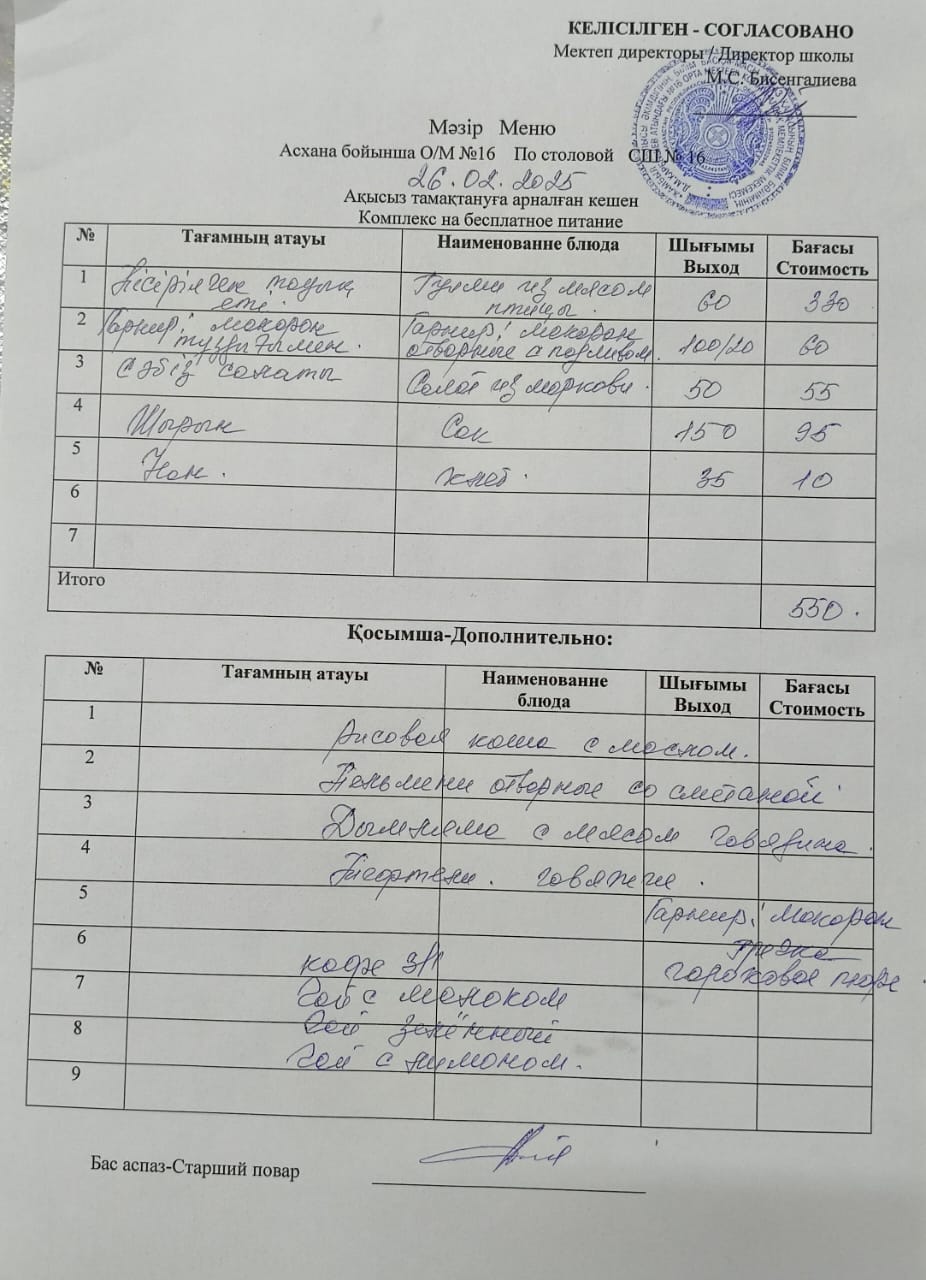 КЕЛІСІЛГЕН - СОГЛАСОВАНО
Мектеп директоры / Директор школы
М.С. Бисенгалиева
Мәзір Меню
Асхана бойынша О/М №16 По столовой СШ № 16
26.02.2025
Ақысыз тамақтануға арналған кешен
Комплекс на бесплатное питание
№ Тағамның атауы Наименованне блюда Шығымы Выход Бағасы Стоимость
1 Пісірілген тауық еті. Гуляш из мясом птицы. 60 330
2 Гарнир: макарон тұздығымен. Гарнир: макарон отворные с подливом. 100/20 60
3 Сәбіз салаты Салат из моркови. 50 55
4 Шырын Сок 150 95
5 Нан. хлеб. 35 10
6
7
Итого
550.
Қосымша-Дополнительно:
№ Тағамның атауы Наименованне блюда Шығымы Выход Бағасы Стоимость
1 Рисовая каша с маслом.
2 Пельмени отворные со сметаной
3 Дымляма с мясом говядина.
4 говяжие.
5 Гарнир: макарон
гречка
6 кофе 3/1 гороховое пюре.
7 Чай с молоком
8 Чай зелённый
Чай с лимоном.
9
Бас аспаз-Старший повар